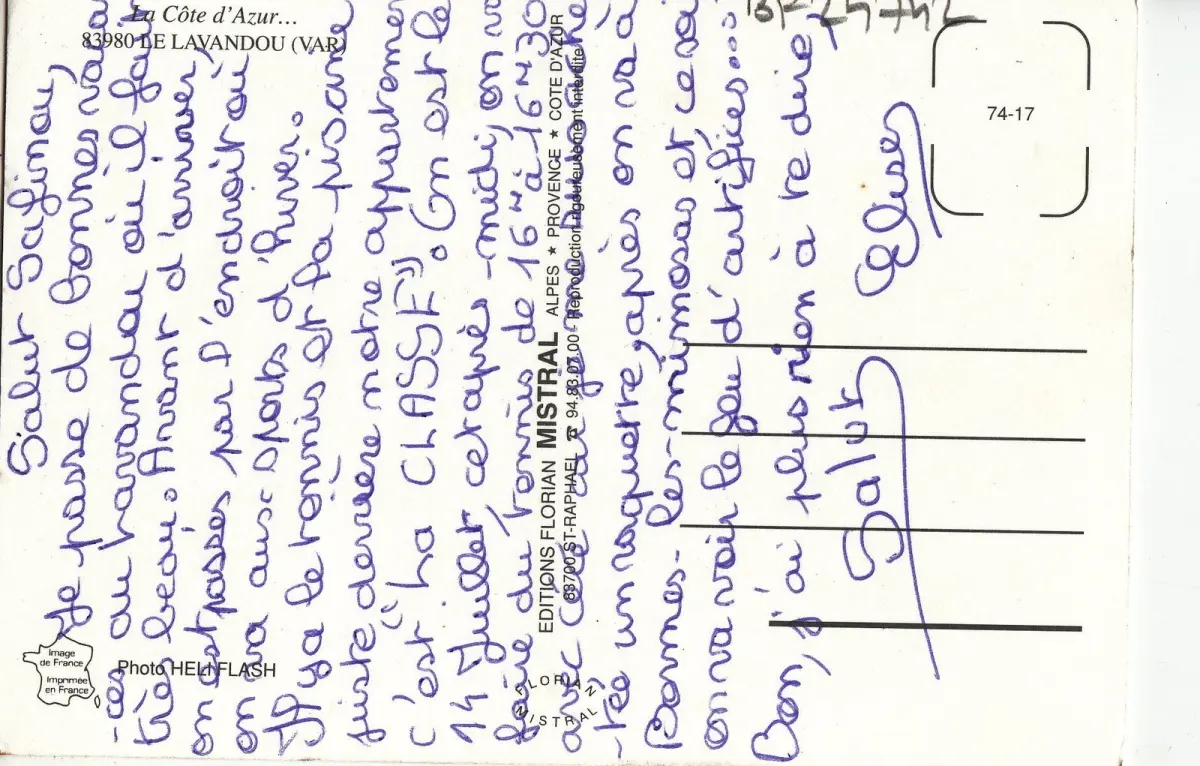 La Côte d'Azur...
83980 LE LAVANDOU (VAR)
74-17
Salut Safinou,
Je passe de bonnes vacan
-ces au Lavandou où il fait
très beau. Avant d'arriver,
on est passés par l'endroit où
on va aux sports d'hiver.
Il y a le tennis et la piscine
juste derrière notre appartement
c'est "La CLASSE". On est le
14 Juillet cet après-midi, on va
faire du tennis de 16H à 16H30
avec
-té un roquette, après on va à
Bormes-les-mimosas et ce soir
on va voir le feu d'artifices...
Bon, j'ai plus rien à te dire,
Salut
EDITIONS FLORIAN MISTRAL ALPES ★ PROVENCE ★ COTE D'AZUR
83700 ST-RAPHAEL ☎ 94.83.07.00 - Reproduction rigoureusement interdite
FLORIAN
MISTRAL
Image
de France
Imprimée
en France
Photo HELI FLASH